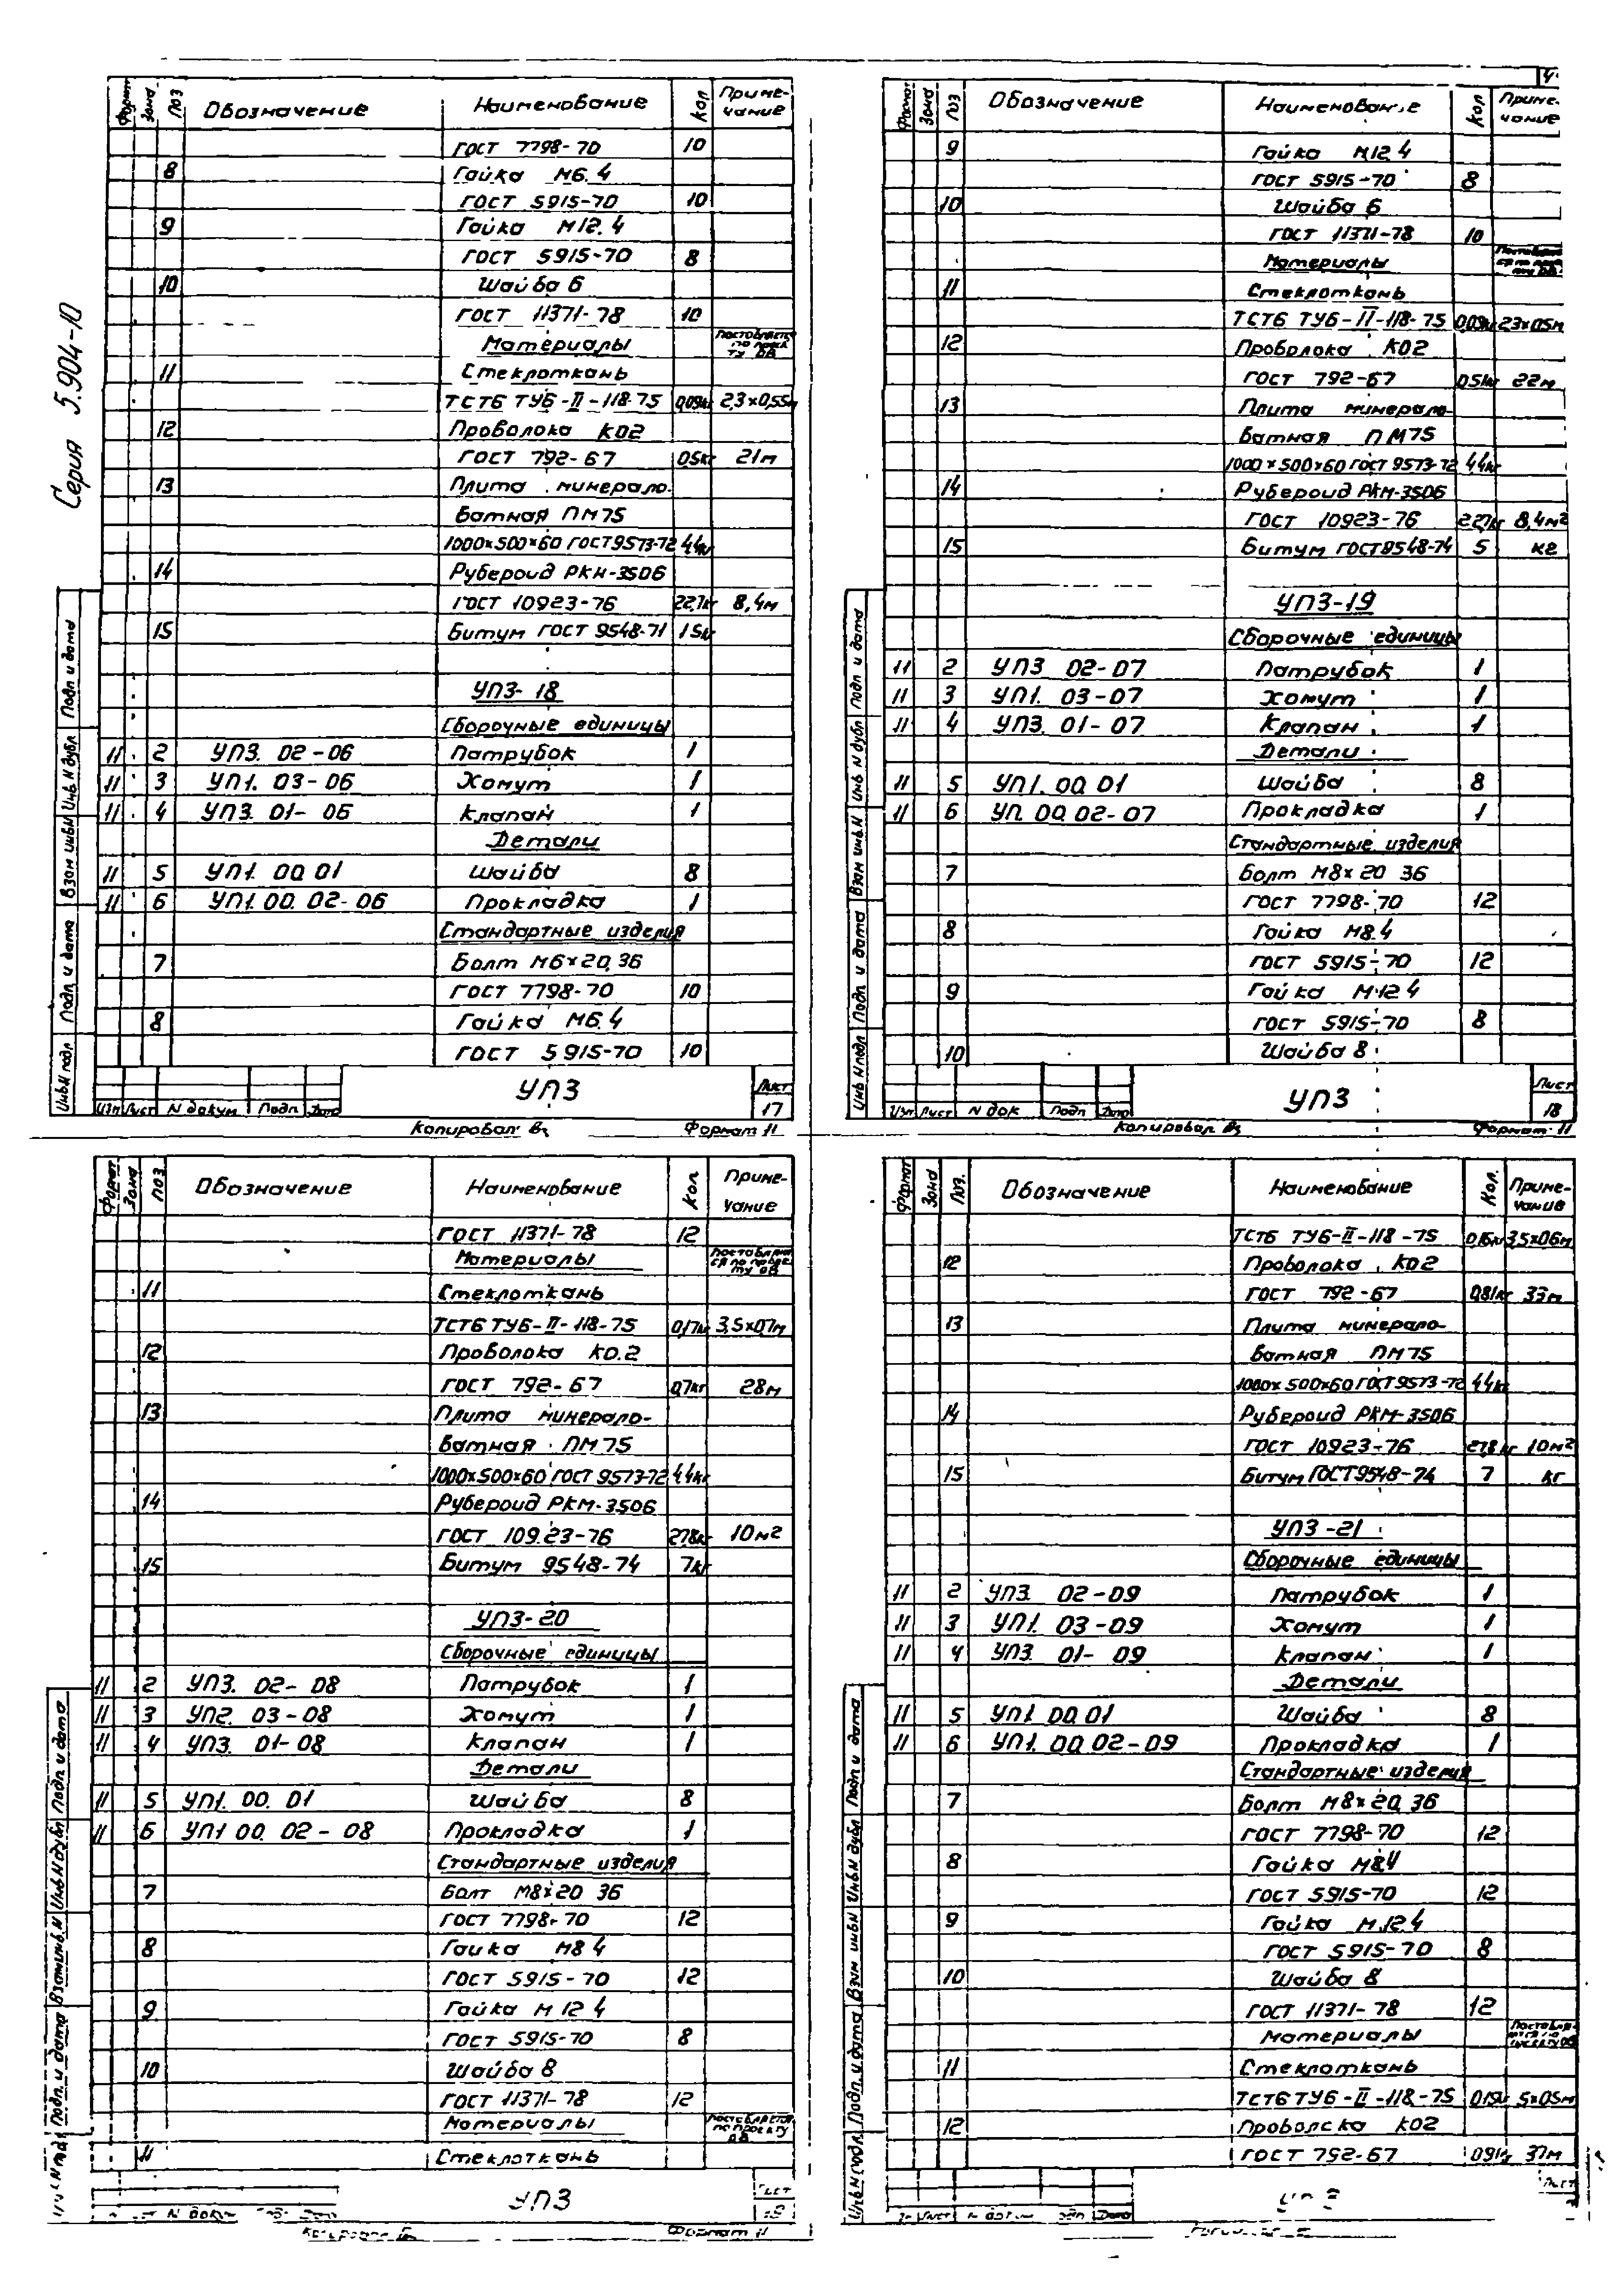 Серия 5.904-10
Формат Зона Поз Обозначение Наименование Кол Приме-
чание
ГОСТ 7798-70 10
8 Гайка М6.4
ГОСТ 5915-70 10
9 Гайка М12.4
ГОСТ 5915-70 8
10 Шайба 6
ГОСТ 11371-78 10
Материалы
11 Стеклоткань
ТСТ6 ТУ6-II-118-75 0,09кг 2,3×0,55м
12 Проволока КО2
ГОСТ 792-67 0,5кг 21м
13 Плита минерало-
ватная ПМ75
1000×500×60 ГОСТ 9573-72 44кг
14 Рубероид РКМ-350б
ГОСТ 10923-76 22,7кг 8,4м
15 Битум ГОСТ 9548-71 15кг
УПЗ-18
Сборочные единицы
11 2 УПЗ. 02-06 Патрубок 1
11 3 УП1. 03-06 Хомут 1
11 4 УПЗ. 01-06 Клапан 1
Детали
11 5 УП1. 00 01 Шайба 8
11 6 УП1. 00. 02-06 Прокладка 1
Стандартные изделия
7 Болт М6×20.36
ГОСТ 7798-70 10
8 Гайка М6.4
ГОСТ 5915-70 10
Подп и дата
Инв N дубл
Взам инв N
Подп и дата
Инв N подл
Изм Лист N докум Подп Дата
УПЗ
Лист
17
Копировал
Формат 11
4
Формат Зона Поз Обозначение Наименование Кол Приме-
чание
9 Гайка М12.4
ГОСТ 5915-70 8
10 Шайба 6
ГОСТ 11371-78 10
Материалы
11 Стеклоткань
ТСТ6 ТУ6-II-118-75 0,09кг 2,3×0,5м
12 Проволока КО2
ГОСТ 792-67 0,51кг 22м
13 Плита минерало-
ватная ПМ75
1000×500×60 ГОСТ 9573-72 44кг
14 Рубероид РКМ-350б
ГОСТ 10923-76 22,7кг 8,4м2
15 Битум ГОСТ 9548-74 5 кг
УПЗ-19
Сборочные единицы
11 2 УПЗ 02-07 Патрубок 1
11 3 УП1. 03-07 Хомут 1
11 4 УПЗ. 01-07 Клапан 1
Детали
11 5 УП1. 00 01 Шайба 8
11 6 УП. 00. 02-07 Прокладка 1
Стандартные изделия
7 Болт М8×20 36
ГОСТ 7798-70 12
8 Гайка М8.4
ГОСТ 5915-70 12
9 Гайка М12 4
ГОСТ 5915-70 8
10 Шайба 8
Подп и дата
Инв N дубл
Взам инв N
Подп и дата
Инв N подл
Изм Лист N док Подп Дата
УПЗ
Лист
18
Копировал
Формат 11
Формат Зона Поз Обозначение Наименование Кол Приме-
чание
ГОСТ 11371-78 12
Материалы
11 Стеклоткань
ТСТ6 ТУ6-II-118-75 0,17кг 3,5×0,7м
12 Проволока КО.2
ГОСТ 792-67 0,7кг 28м
13 Плита минерало-
ватная ПМ75
1000×500×60 ГОСТ 9573-72 44кг
14 Рубероид РКМ-350б
ГОСТ 10923-76 27,8кг 10м2
15 Битум 9548-74 7кг
УПЗ-20
Сборочные единицы
11 2 УПЗ. 02-08 Патрубок 1
11 3 УП2. 03-08 Хомут 1
11 4 УПЗ. 01-08 Клапан 1
Детали
11 5 УП1. 00. 01 Шайба 8
11 6 УП1 00. 02-08 Прокладка 1
Стандартные изделия
7 Болт М8×20 36
ГОСТ 7798-70 12
8 Гайка М8 4
ГОСТ 5915-70 12
9 Гайка М12 4
ГОСТ 5915-70 8
10 Шайба 8
ГОСТ 11371-78 12
Материалы
11 Стеклоткань
Подп и дата
Инв N дубл
Взам инв. N
Подп. и дата
N докум
УПЗ
Лист
Формат 11
Формат Зона Поз. Обозначение Наименование Кол. Приме-
чание
ТСТ6 ТУ6-II-118-75 0,15кг 3,5×0,6м
12 Проволока КО2
ГОСТ 792-67 0,81кг 33м
13 Плита минерало-
ватная ПМ75
1000×500×60 ГОСТ 9573-72 44кг
14 Рубероид РКМ-350б
ГОСТ 10923-76 27,8 кг 10м2
15 Битум ГОСТ 9548-74 7 кг
УПЗ-21
Сборочные единицы
11 2 УПЗ. 02-09 Патрубок 1
11 3 УП1. 03-09 Хомут 1
11 4 УПЗ. 01-09 Клапан 1
Детали
11 5 УП1. 00.01 Шайба 8
11 6 УП1. 00 02-09 Прокладка 1
Стандартные изделия
7 Болт М8×20,36
ГОСТ 7798-70 12
8 Гайка М8.4
ГОСТ 5915-70 12
9 Гайка М.12.4
ГОСТ 5915-70 8
10 Шайба 8
ГОСТ 11371-78 12
Материалы
11 Стеклоткань
ТСТ6 ТУ6-II-118-75 0,19кг 5×0,5м
12 Проволока КО2
ГОСТ 792-67 0,91кг 37м
Подп. и дата
Инв N дубл
Взам инв N
Подп. и дата
Инв N подл
Лист Дата